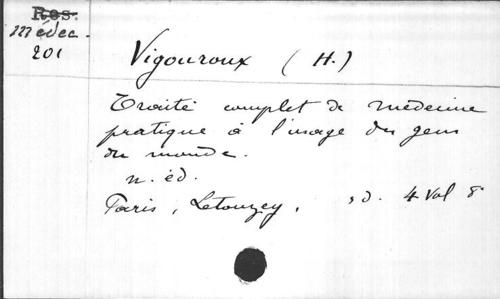 Res.
médec.
201
Vigouroux (H.)
Traité complet de médecine
pratique à l'usage des gens
du monde.
n. éd.
Paris, Letouzey, s.d. 4 Vol 8°